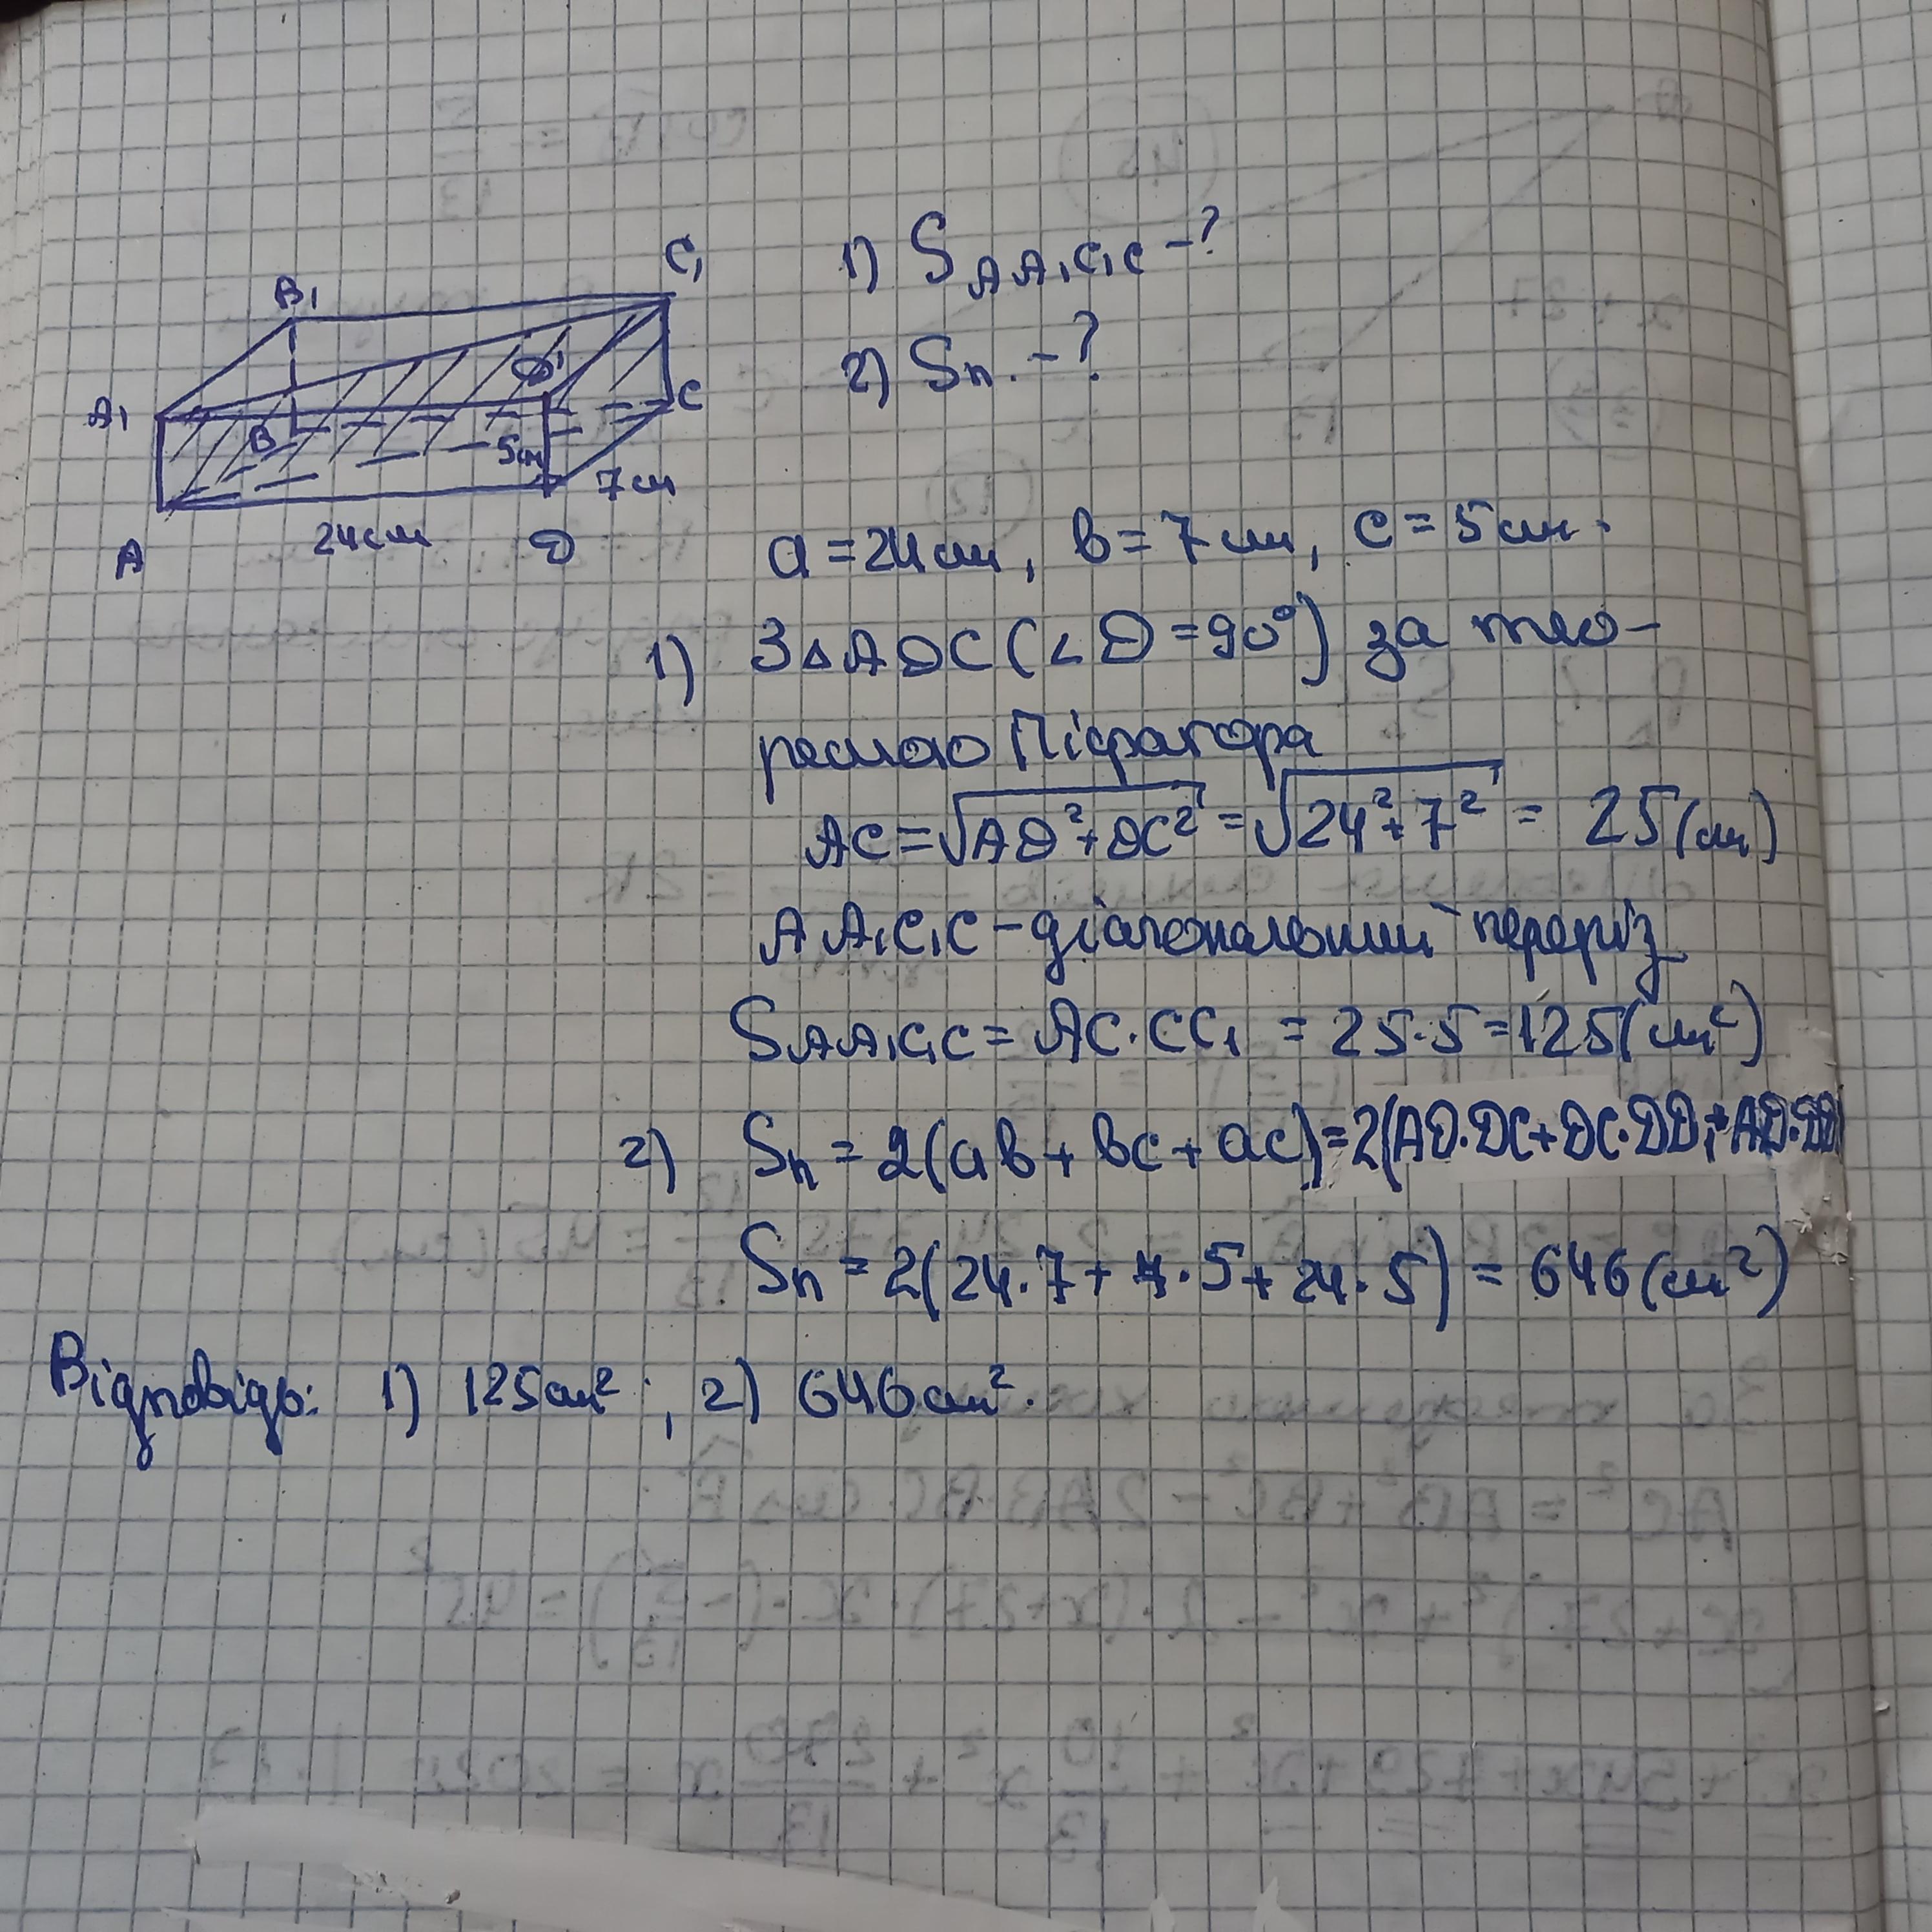 B₁
C₁
A₁
D₁
B
C
5см
7см
A
24см
D
1) S AA₁C₁C -?
2) Sп. -?
a = 24 см, b = 7 см, c = 5 см.
1) З △ADC (∠D = 90°) за тео-
ремою Піфагора
AC = √AD² + DC² = √24² + 7² = 25 (см)
AA₁C₁C - діагональний переріз
S AA₁C₁C = AC · CC₁ = 25 · 5 = 125 (см²)
2) Sп = 2(ab + bc + ac) = 2(AD·DC + DC·DD₁ + AD·DD₁
Sп = 2(24·7 + 7·5 + 24·5) = 646 (см²)
Відповідь: 1) 125 см²; 2) 646 см².